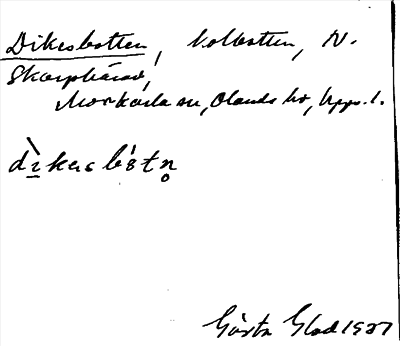 Dikesbotten, kolbotten, N.
Skarphärad,
Morkarla sn, Olands hd, Upps. l.
Gösta Glad 1927